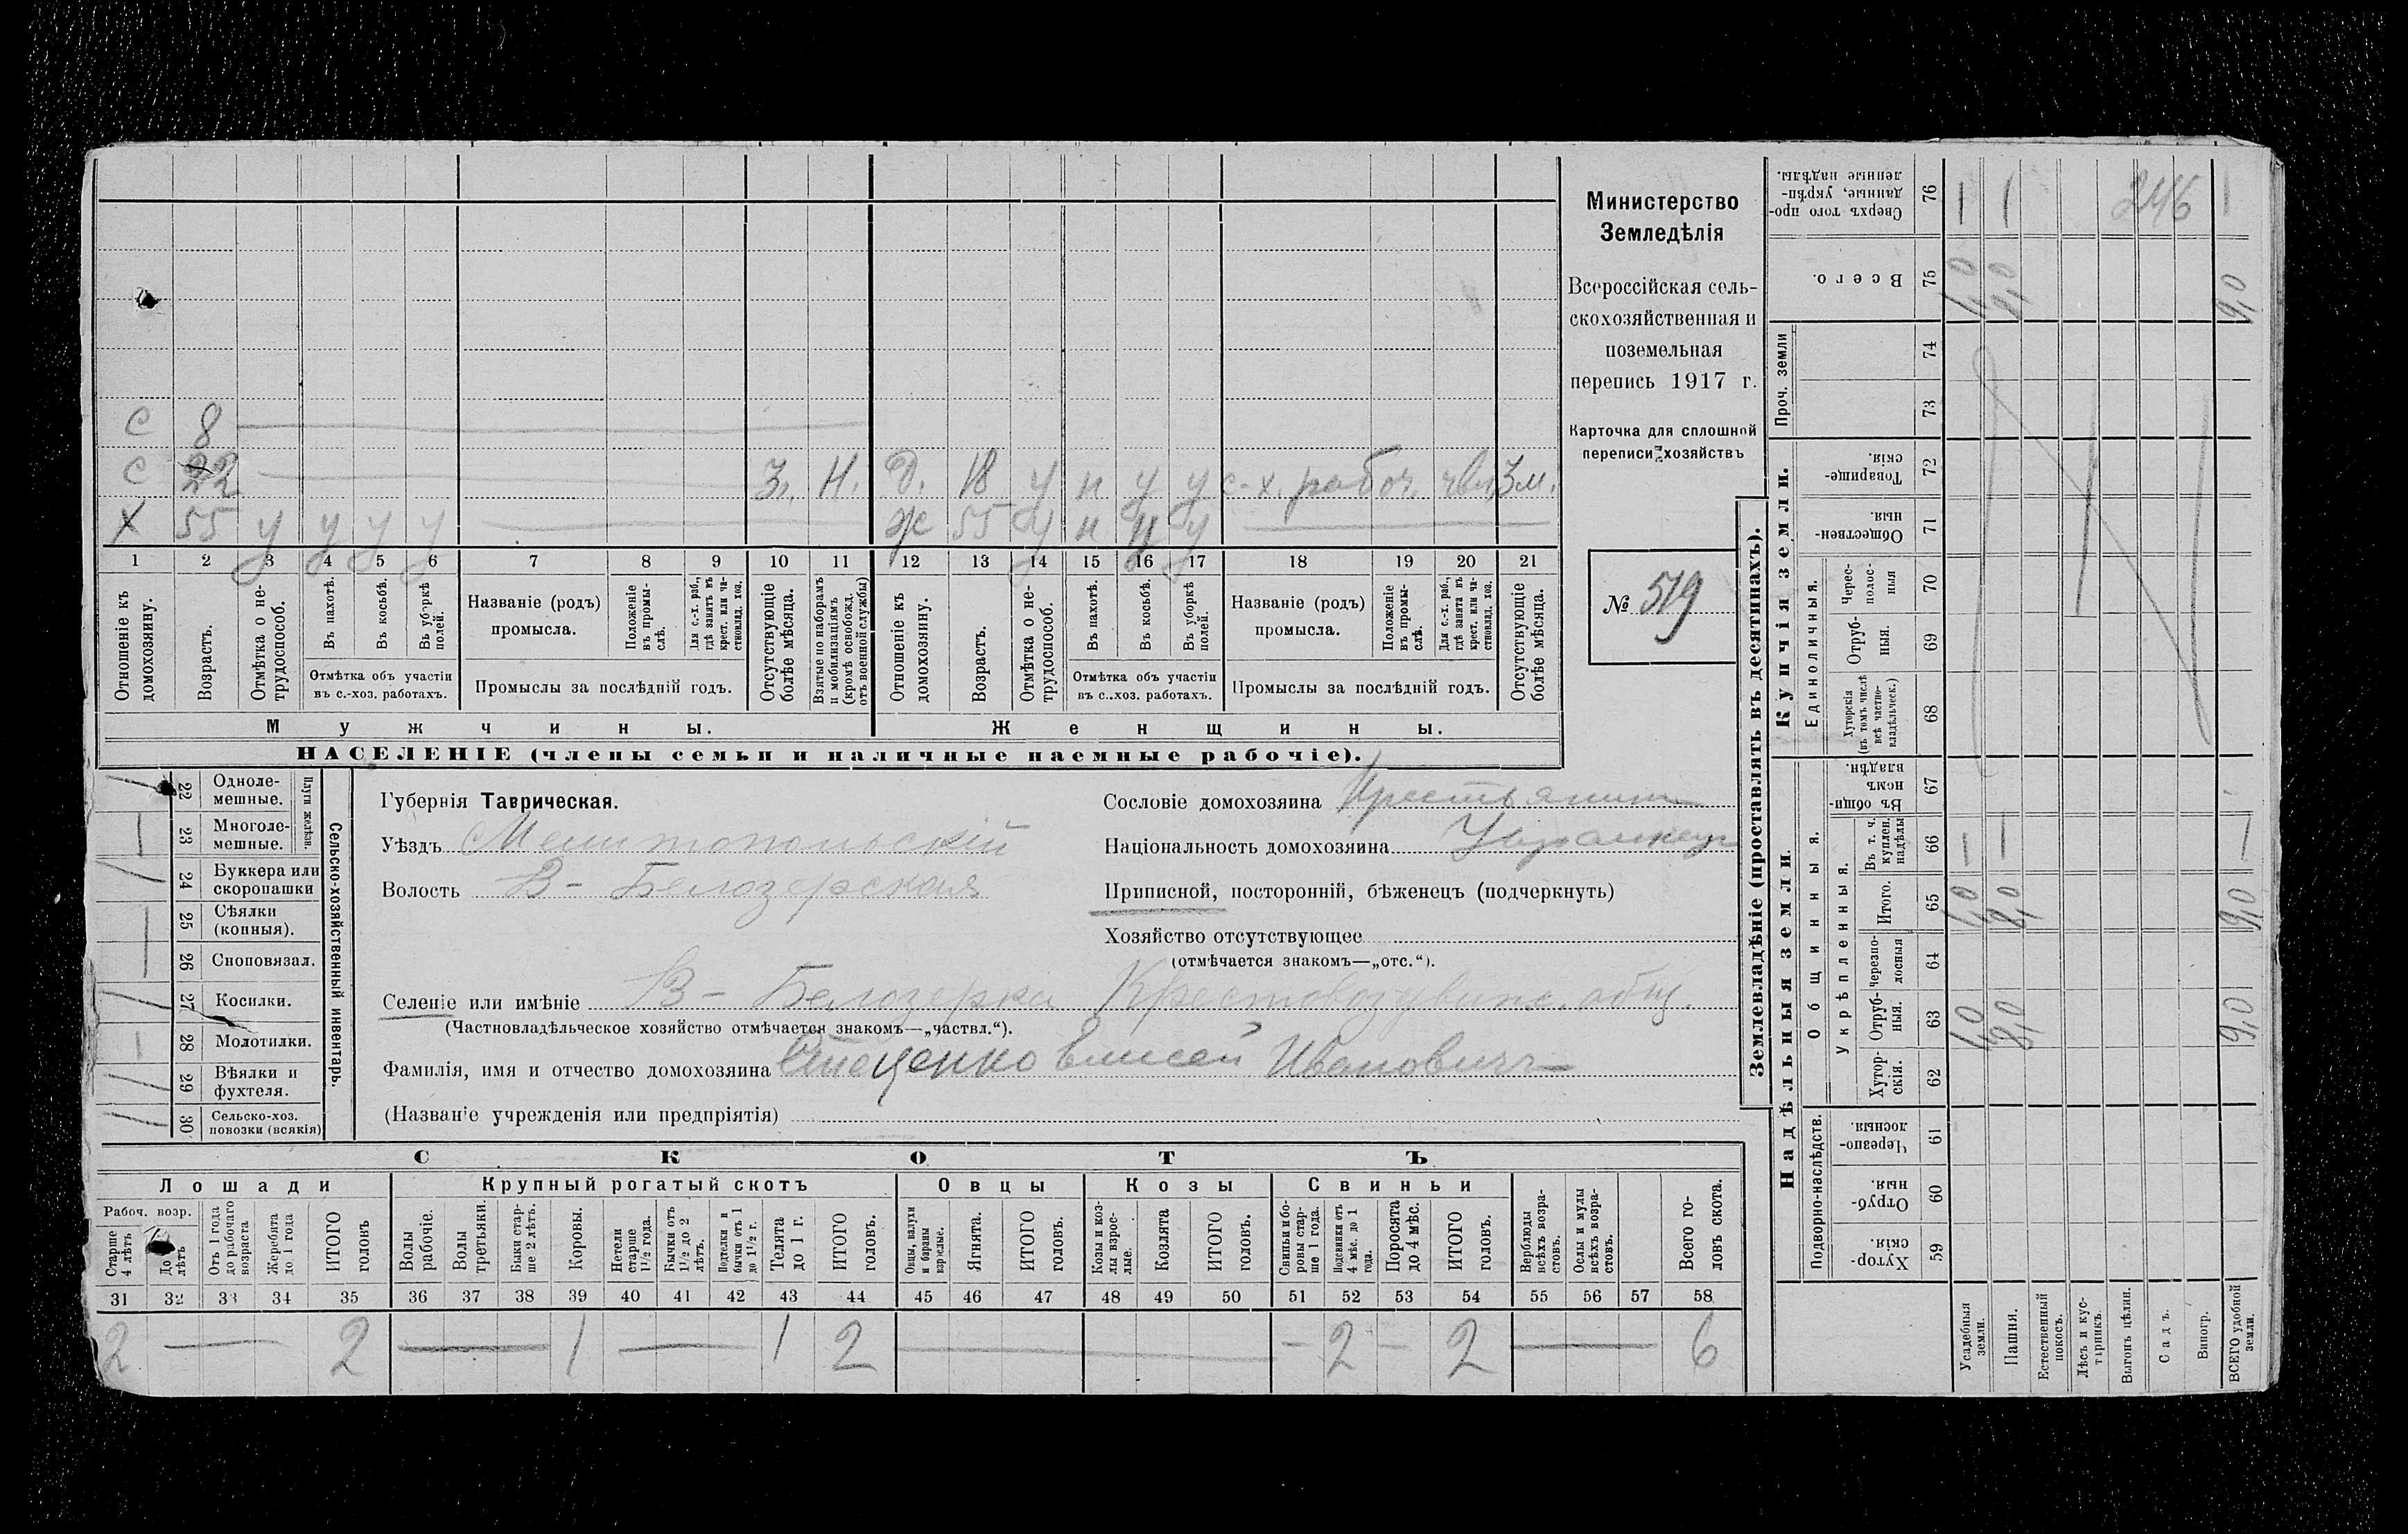 Министерство
Земледѣлія
Всероссійская сель-
скохозяйственная и
поземельная
перепись 1917 г.
Карточка для сплошной
переписи хозяйствъ
№ 519
С 8
С 22 З. Н. Д. 18 У н у у с-х. рабоч. З м.
Х 55 У У У У Ж 55 У н н У
1 2 3 4 5 6 7 8 9 10 11 12 13 14 15 16 17 18 19 20 21
Отношеніе къ домохозяину.
Возрастъ.
Отмѣтка о не-трудоспособ.
Въ пахотѣ.
Въ косьбѣ.
Въ уборкѣ полей.
Отмѣтка объ участіи въ с.-хоз. работахъ.
Названіе (родъ) промысла.
Положеніе въ промы-слѣ.
Для с.-х. раб., гдѣ занятъ въ крест. или ча-стновлад. хоз.
Промыслы за послѣдній годъ.
Отсутствующіе болѣе мѣсяца.
Взятые по наборамъ и мобилизаціямъ (кромѣ освобожд. отъ военной службы)
Отношеніе къ домохозяину.
Возрастъ.
Отмѣтка о не-трудоспособ.
Въ пахотѣ.
Въ косьбѣ.
Въ уборкѣ полей.
Отмѣтка объ участіи въ с..хоз. работахъ.
Названіе (родъ) промысла.
Положеніе въ промы-слѣ.
Для с.-х. раб., гдѣ занята въ крест. или ча-стновлад. хоз.
Промыслы за послѣдній годъ.
Отсутствующіе болѣе мѣсяца.
Мужчины.
Женщины.
НАСЕЛЕНІЕ (члены семьи и наличные наемные рабочіе).
Сельско-хозяйственный инвентарь.
Плуги желѣзн.
22 Одноле-мешные.
23 Многоле-мешные.
24 Буккера или скоропашки
25 Сѣялки (конныя).
26 Сноповязал.
27 Косилки.
28 Молотилки.
29 Вѣялки и фухтеля.
30 Сельско-хоз. повозки (всякія)
Губернія Таврическая.
Уѣздъ Мелитопольскій
Волость В-Белозерская
Сословіе домохозяина Крестьянин
Національность домохозяина Украинец
Приписной, посторонній, бѣженецъ (подчеркнуть)
Хозяйство отсутствующее
(отмѣчается знакомъ—„отс.“).
Селеніе или имѣніе В-Белозерка Крестовоздвиж. общ.
(Частновладѣльческое хозяйство отмѣчается знакомъ—„частвл.“).
Фамилія, имя и отчество домохозяина Стеценко Елисей Иванович
(Названіе учрежденія или предпріятія)
СКОТЪ
Лошади
Крупный рогатый скотъ
Овцы
Козы
Свиньи
Рабоч. возр.
Старше 4 лѣтъ
До лѣтъ
Отъ 1 года до рабочаго возраста
Жеребята до 1 года
ИТОГО головъ
Волы рабочіе.
Волы третьяки.
Быки стар-ше 2 лѣтъ.
Коровы.
Нетели старше 1½ года.
Бычки отъ 1½ до 2 лѣтъ.
Подтелки и бычки отъ 1 до 1½ г.
Телята до 1 г.
ИТОГО головъ.
Овцы, валухи и бараны взрослые.
Ягнята.
ИТОГО головъ.
Козы и коз-лы взрос-лые.
Козлята
ИТОГО головъ.
Свиньи и бо-ровы стар-ше 1 года.
Подсвинки отъ 4 мѣс. до 1 года.
Поросята до 4 мѣс.
ИТОГО головъ.
Верблюды всѣхъ возра-стовъ.
Ослы и мулы всѣхъ возра-стовъ.
Всего го-ловъ скота.
31 32 33 34 35 36 37 38 39 40 41 42 43 44 45 46 47 48 49 50 51 52 53 54 55 56 57 58
2 — 2 — 1 — 1 2 — - 2 - 2 — 6
Землевладѣніе (проставлять въ десятинахъ).
Надѣльныя земли
Купчія земли.
Проч. земли
Подворно-наслѣдств.
Общинныя.
Укрѣпленныя.
Единоличныя.
Сверхъ того про-данные, укрѣп-ленные надѣлы. 76
Всего. 75
74
73
Товарище-скія. 72
Обществен-ныя. 71
Черес-полос-ныя 70
Отруб-ныя. 69
Хуторскія (въ томъ числѣ всѣ частно-владѣльческ.) 68
Въ общи-номъ владѣн. 67
Въ т. ч. куплен. надѣлы 66
Итого. 65
Черезпо-лосныя 64
Отруб-ныя. 63
Хутор-скія. 62
Черезпо-лосныя. 61
Отруб-ныя. 60
Хутор-скія. 59
Усадебныя земли.
Пашня.
Естественный покосъ.
Лѣсъ и кус-тарникъ.
Выгонъ цѣлин.
Садъ.
Виногр.
ВСЕГО удобной земли.
246
1,0 8,0 9,0
1,0 8,0 9,0
1,0 8,0 9,0